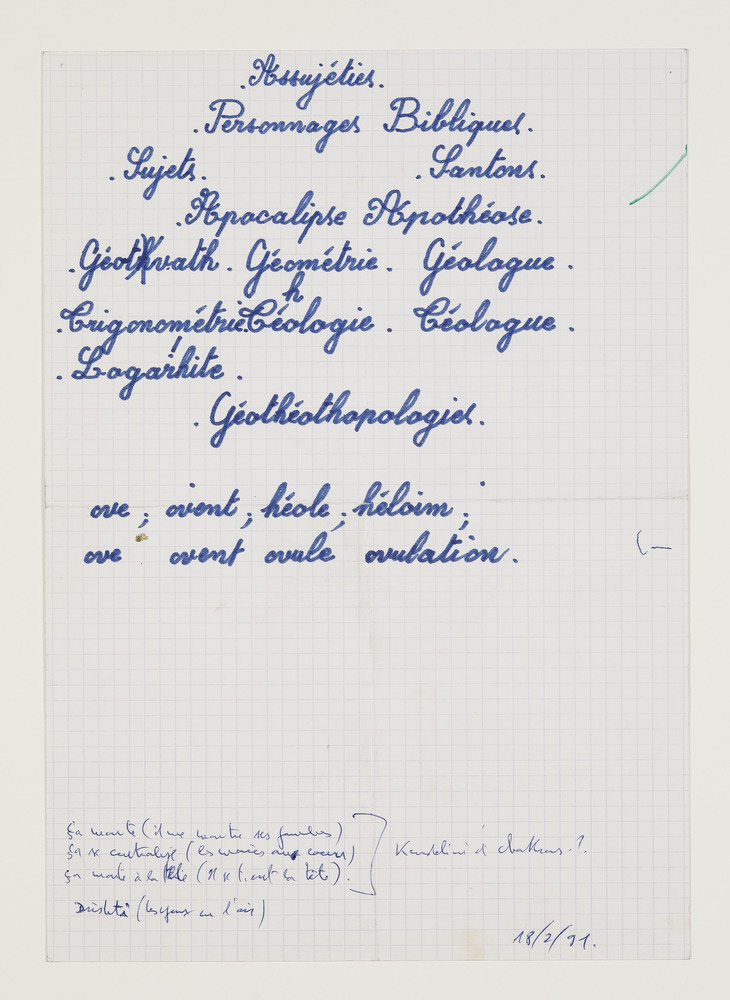 .Assujéties.
.Personnages Bibliques.
.Sujets. .Santons.
.Apocalipse Apothéose.
.Géothvath. Géométrie. Géologue.
.Trigonométrie. Théologie. Téologue.
.Logarhite.
.Géothéothopologies.
ove ; ovent ; héole ; héloim ;
ove ovent ovulé ovulation.
ça monte (il me montre ses jambes)
ça se centralise (les mains aux coeur)
ça monte à la tête (Il se tient la tête).
Kundalini et chakras ?
(les yeux en l'air)
18/2/91.